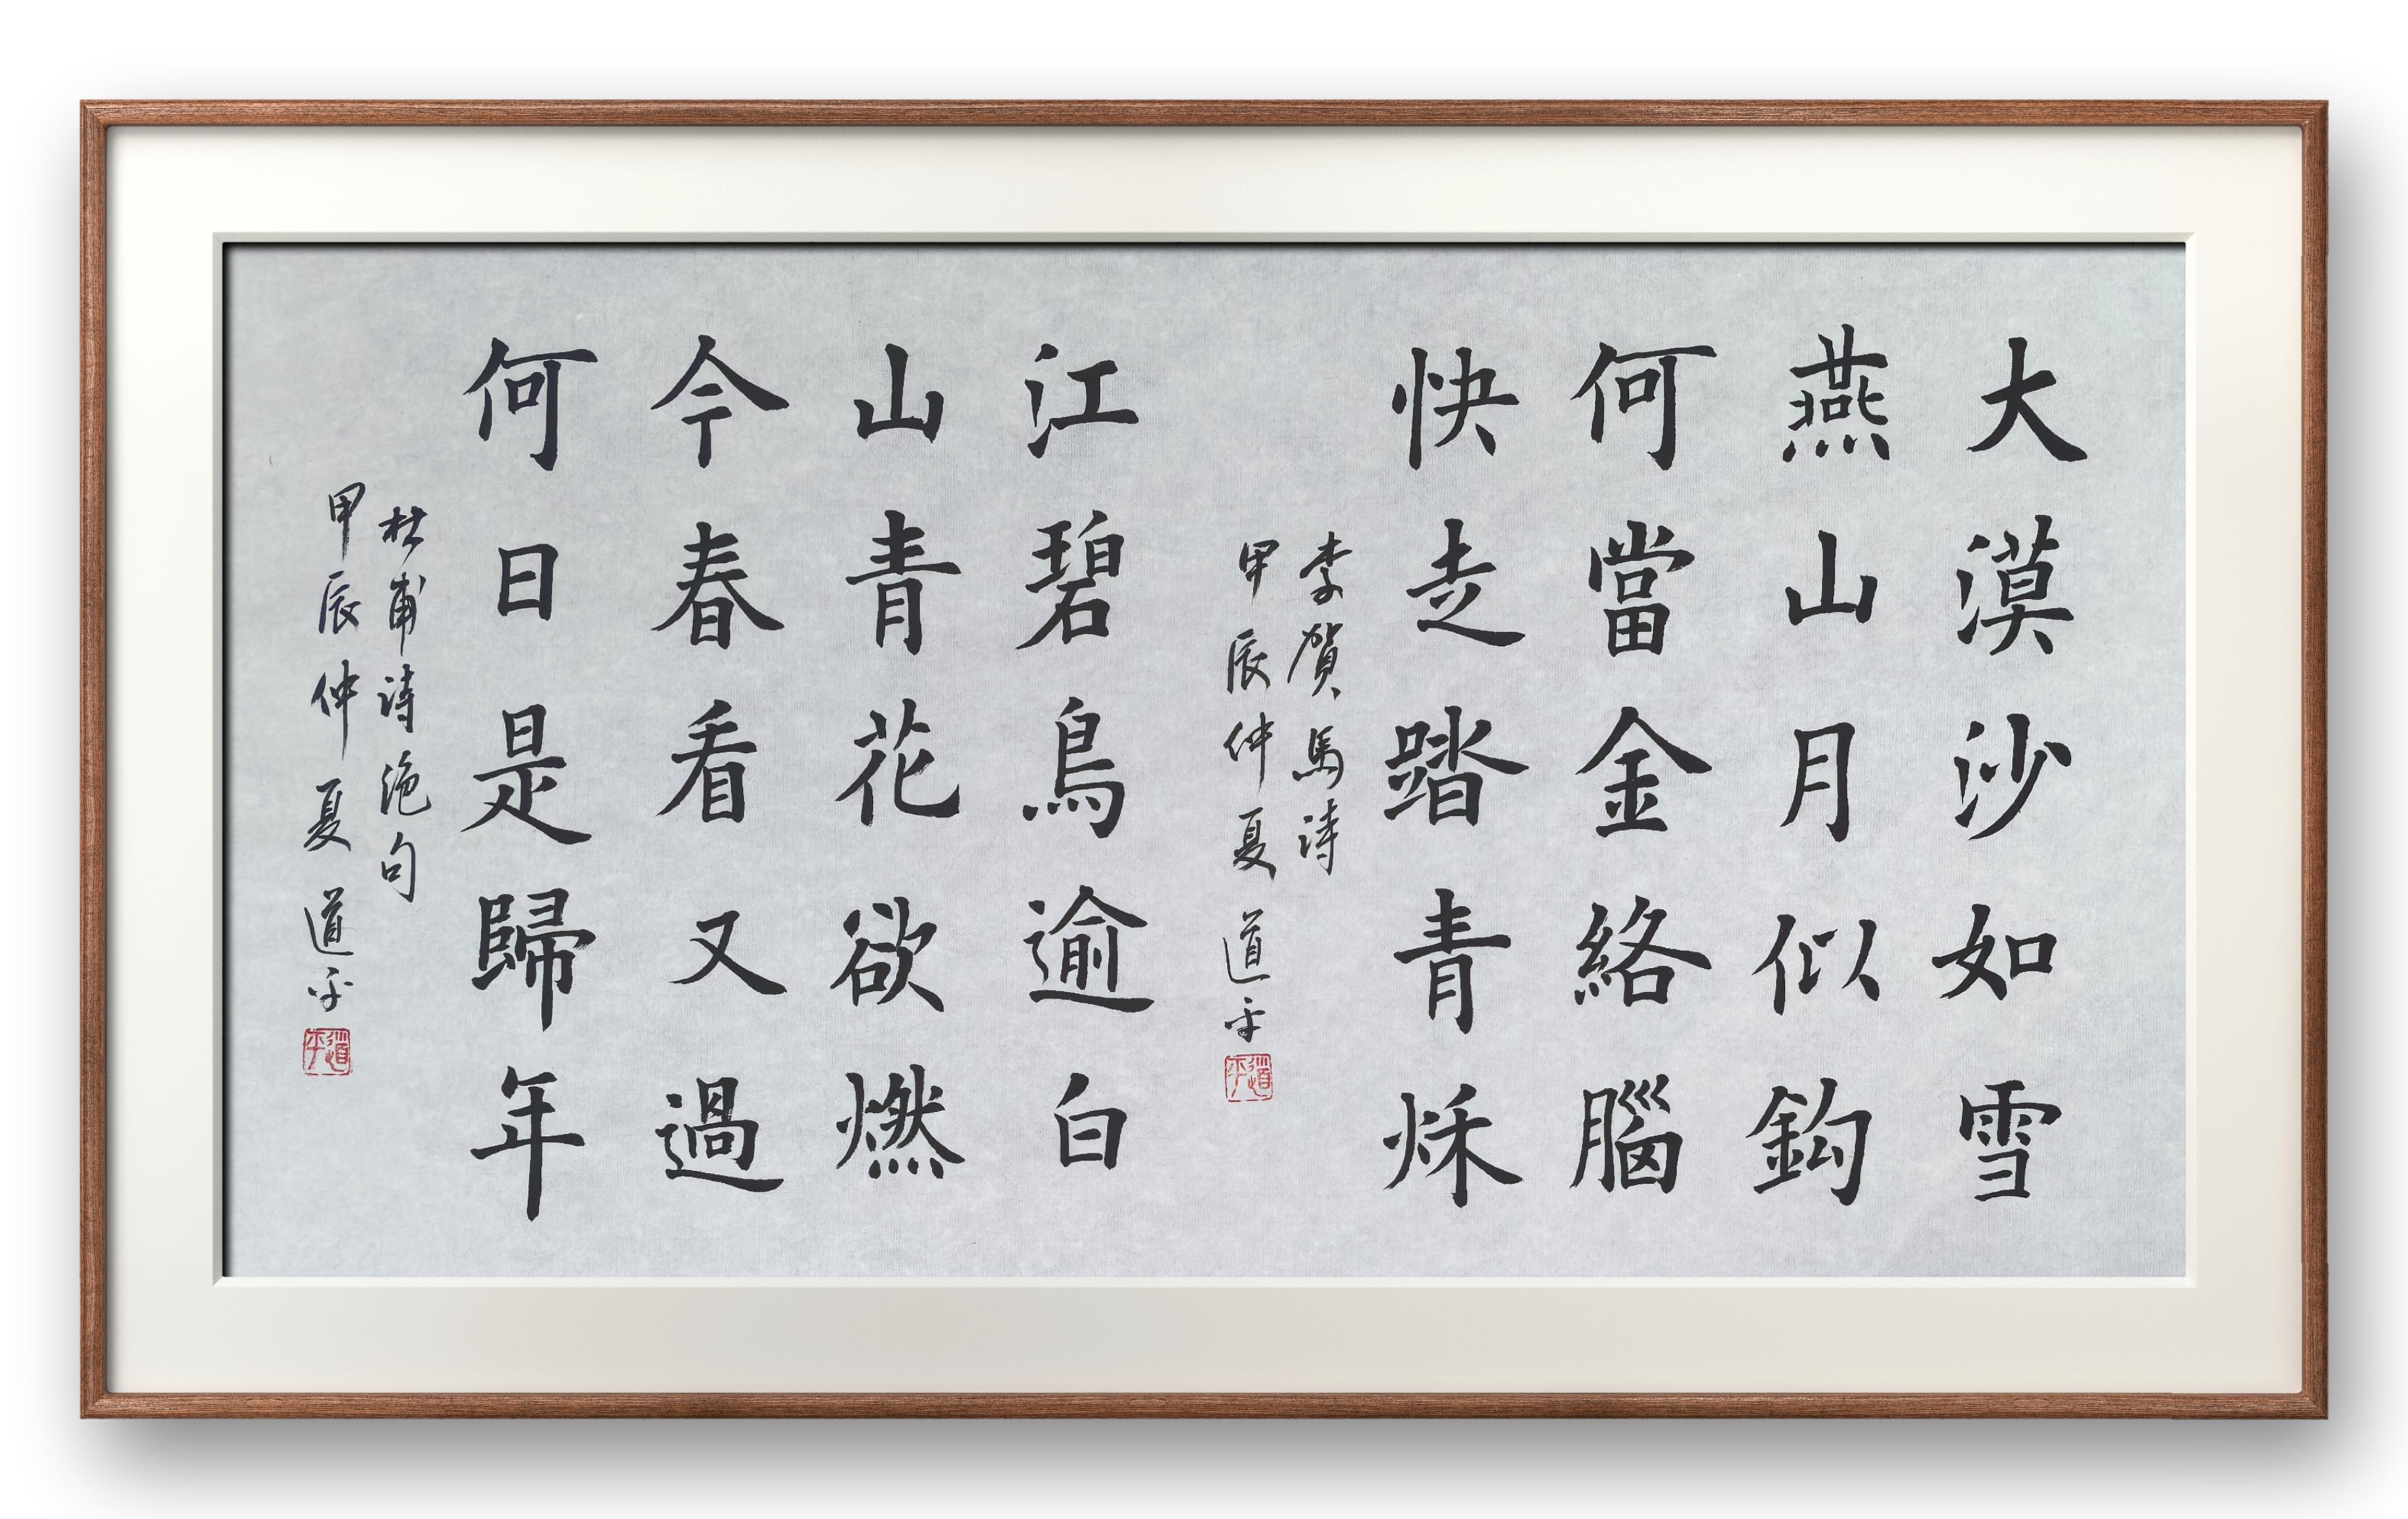 大漠沙如雪
燕山月似鈎
何當金絡腦
快走踏青秌
李賀馬詩
甲辰仲夏 道平
道平
江碧鳥逾白
山青花欲燃
今春看又過
何日是歸年
杜甫诗绝句
甲辰仲夏 道平
道平